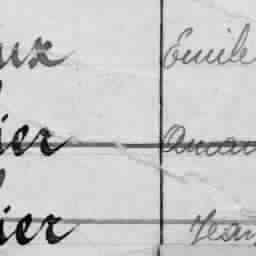 ux Emile
ier Aman
ier Jean